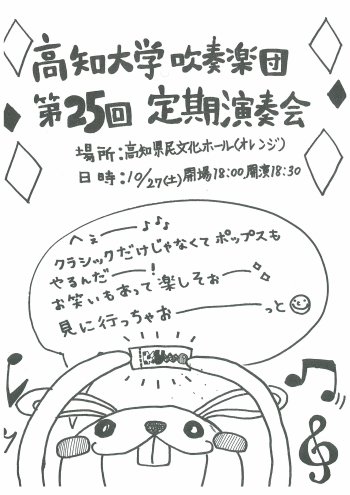 高知大学吹奏楽団
第25回 定期演奏会
場所:高知県民文化ホール(オレンジ)
日時:10/27(土)開場18:00開演18:30
へぇ――♪♪♪
クラシックだけじゃなくてポップスも
やるんだ――!
お笑いもあって楽しそぉ――
見に行っちゃお――っと